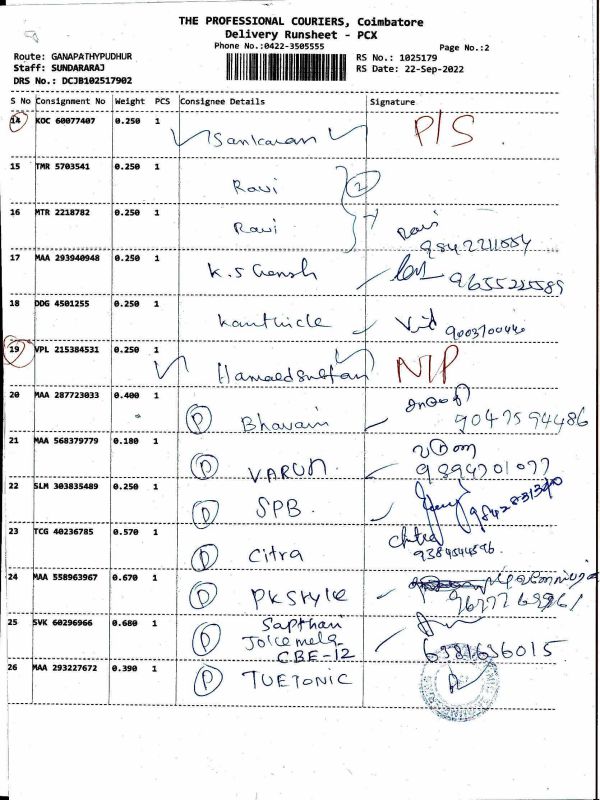 THE PROFESSIONAL COURIERS, Coimbatore
Delivery Runsheet - PCX
Phone No.:0422-3505555
Page No.:2
Route: GANAPATHYPUDHUR
RS No.: 1025179
Staff: SUNDARARAJ
RS Date: 22-Sep-2022
DRS No.: DCJB102517902
S No Consignment No Weight PCS Consignee Details Signature
14 KOC 60077407 0.250 1 Sankaran P/S
15 TMR 5703541 0.250 1 Ravi 2
16 MTR 2218782 0.250 1 Ravi Ravi
17 MAA 293940948 0.250 1 K.S Ganesh
9655225589
18 DDG 4501255 0.250 1
9003700440
19 VPL 215384531 0.250 1 N/P
20 MAA 287723033 0.400 1 P
9047594486
21 MAA 568379779 0.180 1 P VARUN
22 SLM 303835489 0.250 1 P SPB
23 TCG 40236785 0.570 1 P Citra Chitra
9384544596
24 MAA 558963967 0.670 1 P PK Style
25 SVK 60296966 0.680 1 P
CBE-12
6381636015
26 MAA 293227672 0.390 1 P TUETONIC